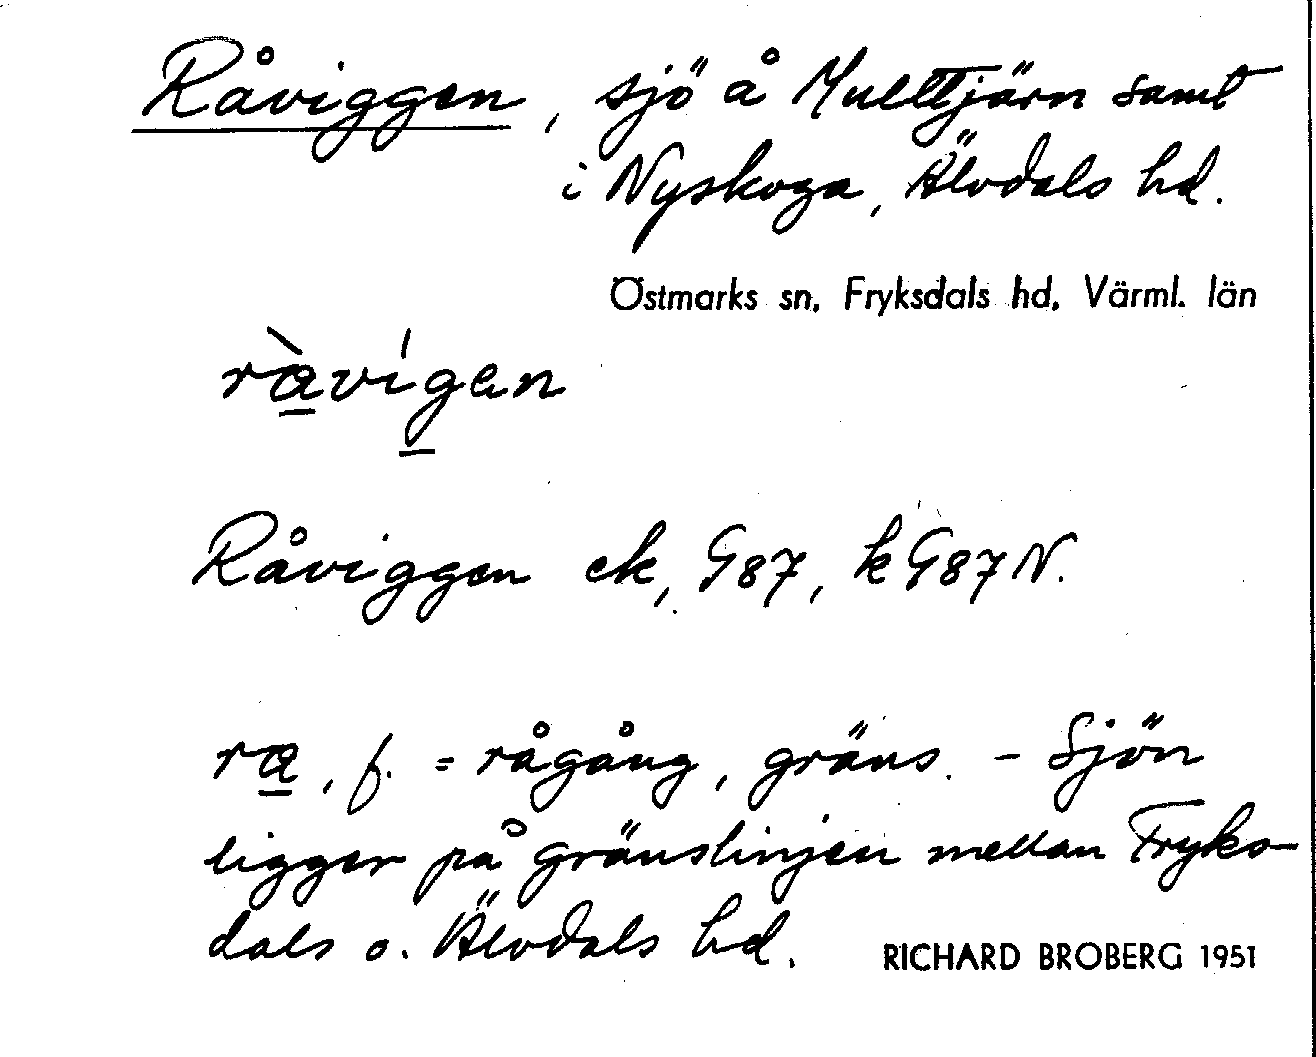 Råviggen, sjö å Multtjärn samt
i Nyskoga, Älvdals hd.
Östmarks sn, Fryksdals hd, Värml. län
ràvígen
Råviggen ek, G87, k G87 N.
ra, f. = rågång, gräns. - Sjön
ligger på gränslinjen mellan Fryks-
dals o. Älvdals hd.
RICHARD BROBERG 1951